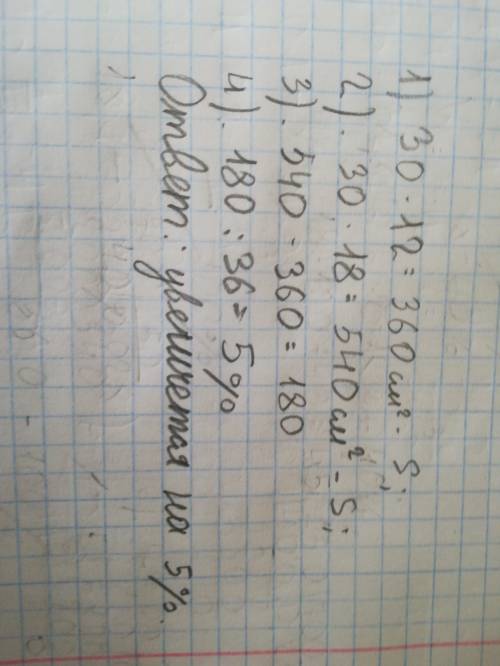 1) 30 · 12 = 360 см² - S;
2). 30 · 18 = 540 см² - S;
3). 540 - 360 = 180
4). 180 : 36 = 5%
Ответ: увеличетая на 5%.